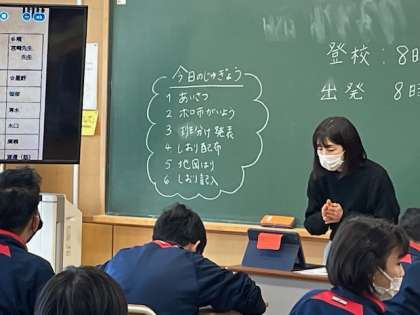 今日のじゅぎょう
1 あいさつ
2 ホロ市がいよう
3 班分け発表
4 しおり配布
5 地図はり
6 しおり記入
登校：8時
出発 8時
宮崎先生
先生
清水
水口